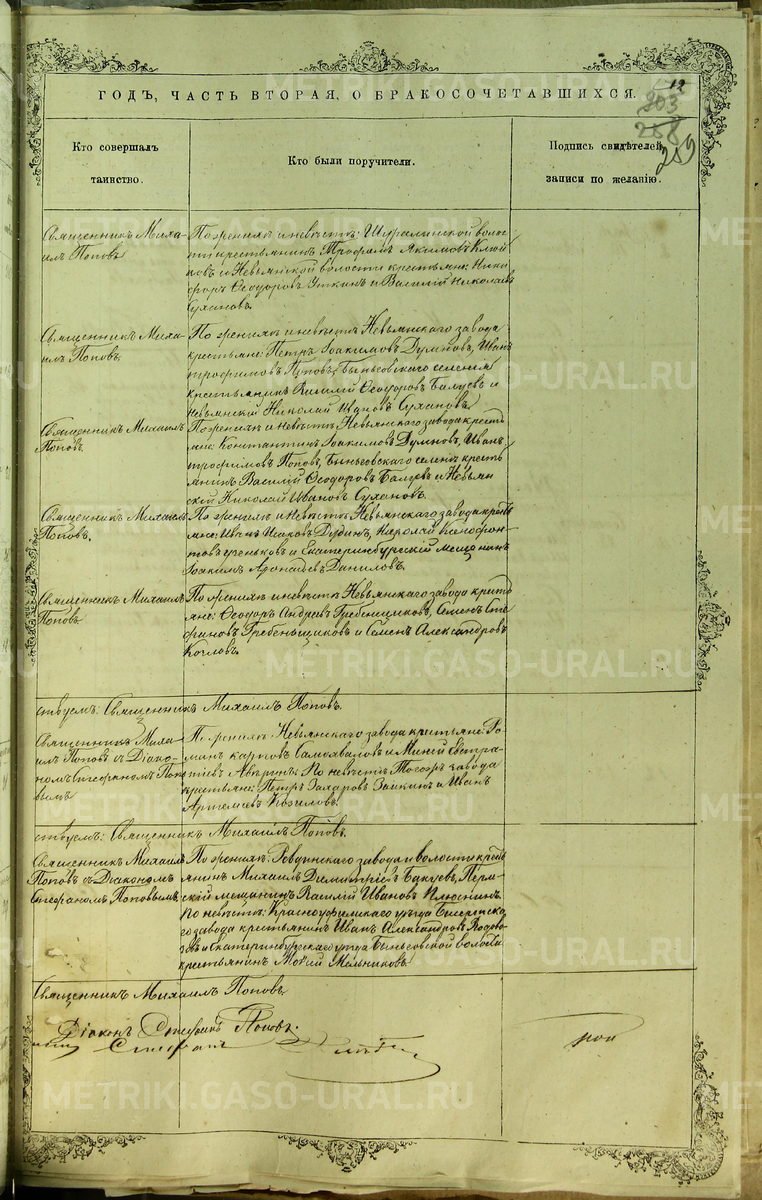 12
203
258
259
ГОДЪ, ЧАСТЬ ВТОРАЯ, О БРАКОСОЧЕТАВШИХСЯ.
Кто совершалъ
таинство.
Кто были поручители.
Подпись свидѣтелей
записи по желанію.
Священникъ Миха-
илъ Поповъ
По женихѣ и невѣстѣ: Шуралинской волос-
ти крестьянинъ Трофимъ Якимовъ Клю
повъ и Невьянской волости крестьяне: Ники
форъ Ѳеодоровъ Уткинъ и Василій Николаевъ
Сухановъ.
Священникъ Миха-
илъ Поповъ.
По женихѣ и невѣстѣ Невьянскаго завода
крестьяне: Петръ Іоакимовъ Думновъ, Иванъ
Трофимовъ Поповъ, Быньговскаго селенія
крестьянинъ Василій Ѳеодоровъ и
Невьянскій Николай Ивановъ Сухановъ.
Священникъ Михаилъ
Поповъ.
По женихѣ и невѣстѣ, Невьянскаго завода кресть
яне: Константинъ Іоакимовъ Думновъ, Иванъ
Трофимовъ Поповъ, Быньговскаго селенія кресть
янинъ Василій Ѳеодоровъ и Невьян
скій Николай Ивановъ Сухановъ.
Священникъ Михаилъ
Поповъ.
По женихѣ и невѣстѣ Невьянскаго завода кресть
яне: Иванъ Исаковъ Николай Ксенофон
товъ и Екатеринбургскій мещанинъ
Іоакимъ Даниловъ.
Священникъ Михаилъ
Поповъ
По женихѣ и невѣстѣ Невьянскаго завода кресть
яне: Ѳеодоръ Андреевъ Гребенщиковъ, Семенъ Сте
фановъ Гребеньщиковъ и Семенъ Александровъ
Козловъ.
ствуемъ: Священникъ Михаилъ Поповъ.
Священникъ Миха-
илъ Поповъ съ Діако-
номъ Стефаномъ Попо
вымъ
По женихѣ Невьянскаго завода крестьяне: Ро-
манъ Карповъ Самохваловъ и Миней Евстра-
тіевъ Аваринъ. По невѣстѣ Тогожъ завода
крестьяне: Петръ Захаровъ Заикинъ и Иванъ
Артемьевъ
ствуемъ: Священникъ Михаилъ Поповъ.
Священникъ Михаилъ
Поповъ съ Діакономъ
Стефаномъ Поповымъ.
По женихѣ: Ревдинскаго завода и волости кресть
янинъ Михаилъ Димитріевъ Перм-
скій мещанинъ Василій Ивановъ Плюснинъ.
По невѣстѣ: Красноуфимскаго уѣзда
завода крестьянинъ Иванъ Александровъ
и Екатеринбургскаго уѣзда Быньговской волости
крестьянинъ Мокій Мельниковъ.
Священникъ Михаилъ Поповъ.
Діаконъ Стефанъ Поповъ.
Стефанъ
METRIKI.GASO-URAL.RU